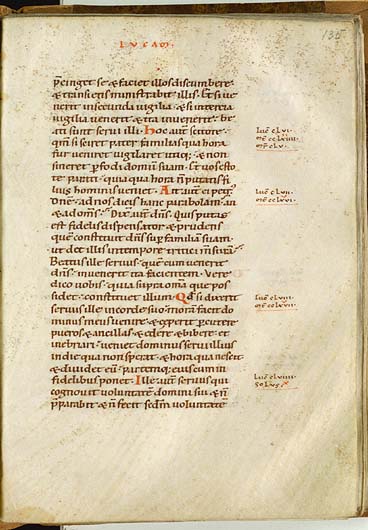 LUCAM
135
p̄cinget se & faciet illos discumbere.
& transiens ministrabit illis. Et si ue
nerit in secunda uigilia & si in tercia
uigilia uenerit & ita inuenerit. be
ati sunt serui illi. Hoc autē scitote.
qm̄ si sciret pater familias qua hora
fur ueniret uigilaret utiq; & non
sineret ꝑfodi domum suam. Et uos esto
te parati. quia qua hora ñ putatis fi
lius hominis ueniet. Ait autē ei petr;
Dn̄e. ad nos dicis hanc parabolam. an
& ad om̄s? Dix autē dn̄s. Quis putas
est fidelis dispensator & prudens
quē constituit dn̄s sup familiam suam.
ut det illis in tempore tritici mensurā?
Beatus ille seruus. quē cum uenerit
dn̄s. inuenerit ita facientem. Vere
dico uobis. quia supra omnia que pos
sidet. constituet illum. Qđ si dixerit
seruus ille in corde suo. moram facit do
minus meus uenire. & ceperit percutere
pueros & ancillas. & edere & bibere. et
inebriari. ueniet dominus serui illius
in die qua non sperat. & hora qua nescit.
& diuidet eū. partemq; eius cum in
fidelibus ponet. Ille autē seruus qui
cognouit uoluntatē domini sui. & ñ
p̄parabit & ñ fecit scdm uoluntatē
Luc̄ CLVI.
Luc̄ CLVII.
Luc̄ CLVIII.
Luc̄ CLVIIII.